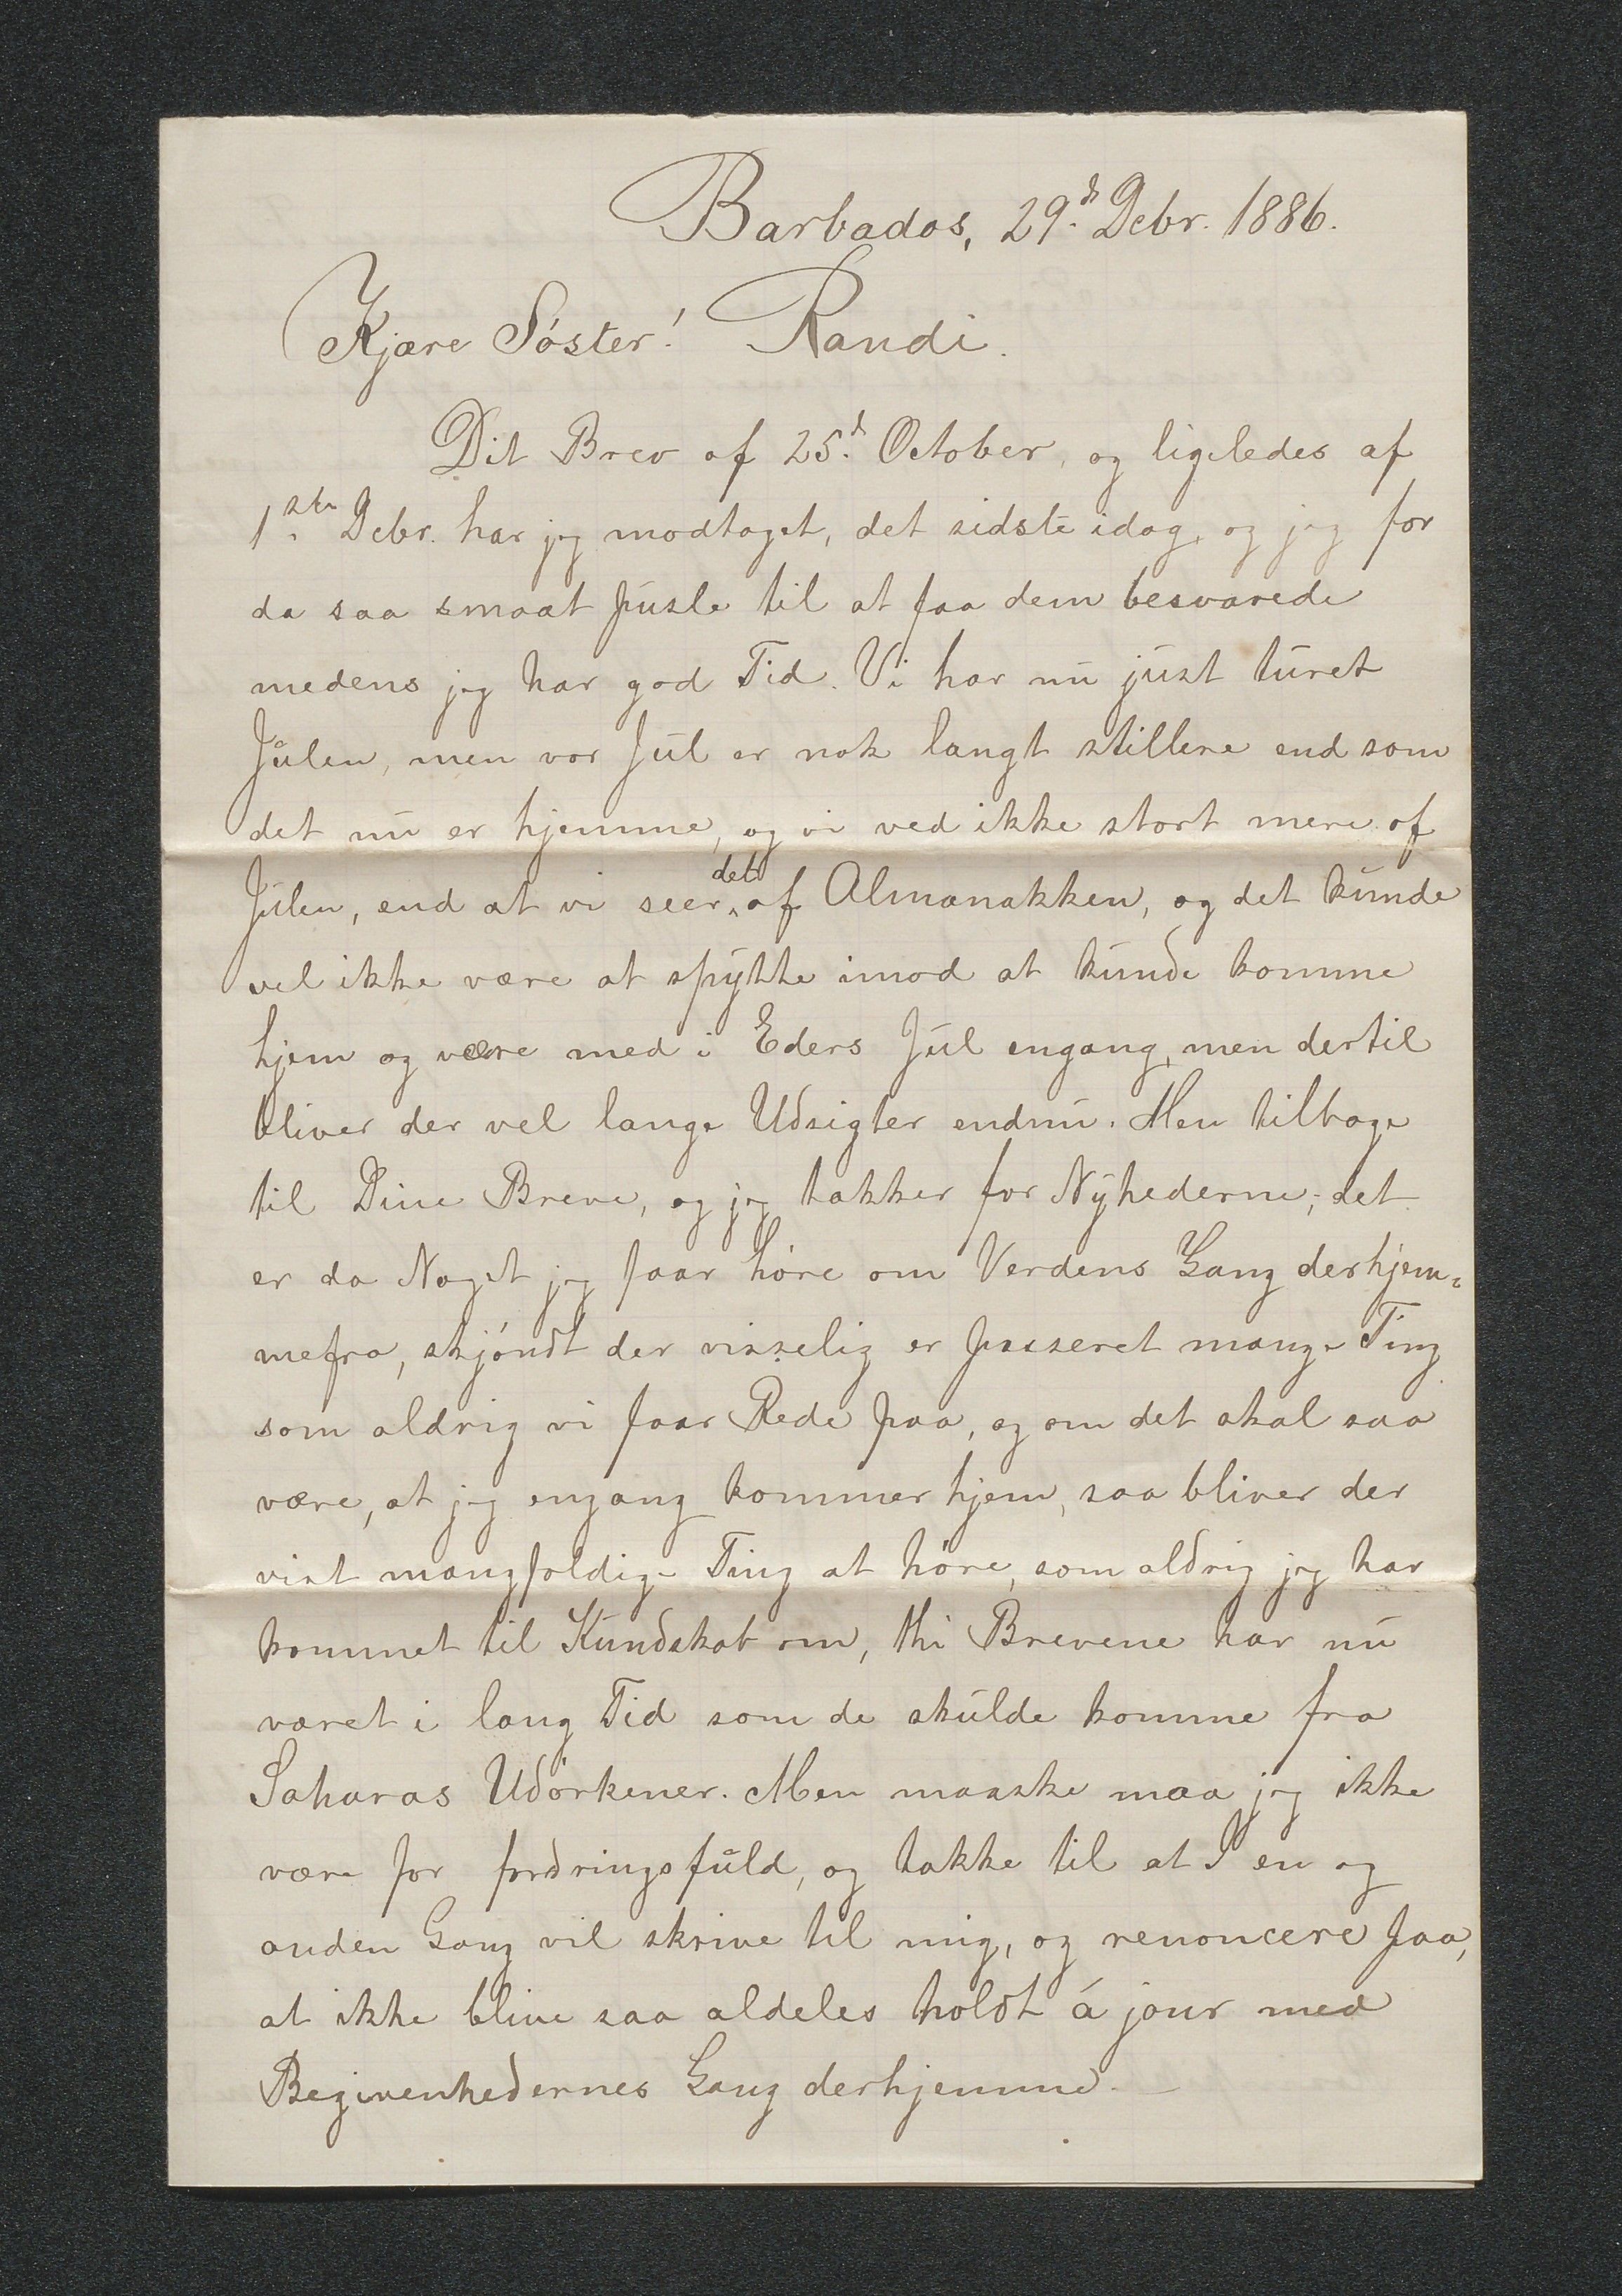 Barbados, 29.d Debr. 1886.
Kjære Söster! Randi.
Dit Brev af 25.d October, og ligeledes af
1.ste Debr. har jeg modtaget, det sidste idag, og jeg for
da saa smaat pusle til at faa dem besvarede
medens jeg har god Tid. Vi har nu just turet
Julen, men vor Jul er nok langt stillere end som
det nu er hjemme, og vi ved ikke stort mere af
Julen, end at vi seer det af Almanakken, og det kunde
vel ikke være at spytte imod at kunde komme
hjem og være med i Eders Jul engang, men dertil
bliver der vel lange Udsigter endnu. Men tilbage
til Dine Breve, og jeg takker for Nyhederne, det
er da Noget jeg faar höre om Verdens Gang derhjem=
mefra, skjöndt der visselig er passeret mange Ting
som aldrig vi faar Rede paa, og om det skal saa
være, at jeg engang kommer hjem, saa bliver der
vist mangfoldige Ting at höre, som aldrig jeg har
kommet til Kundskab om, thi Brevene har nu
været i lang Tid som de skulde komme fra
Saharas Udörkener. Men maaske maa jeg ikke
være for fordringsfuld, og takke til at I en og
anden Gang vil skrive til mig, og renoncere paa,
at ikke blive saa aldeles holdt á jour med
Begivenhedernes Gang derhjemme. —